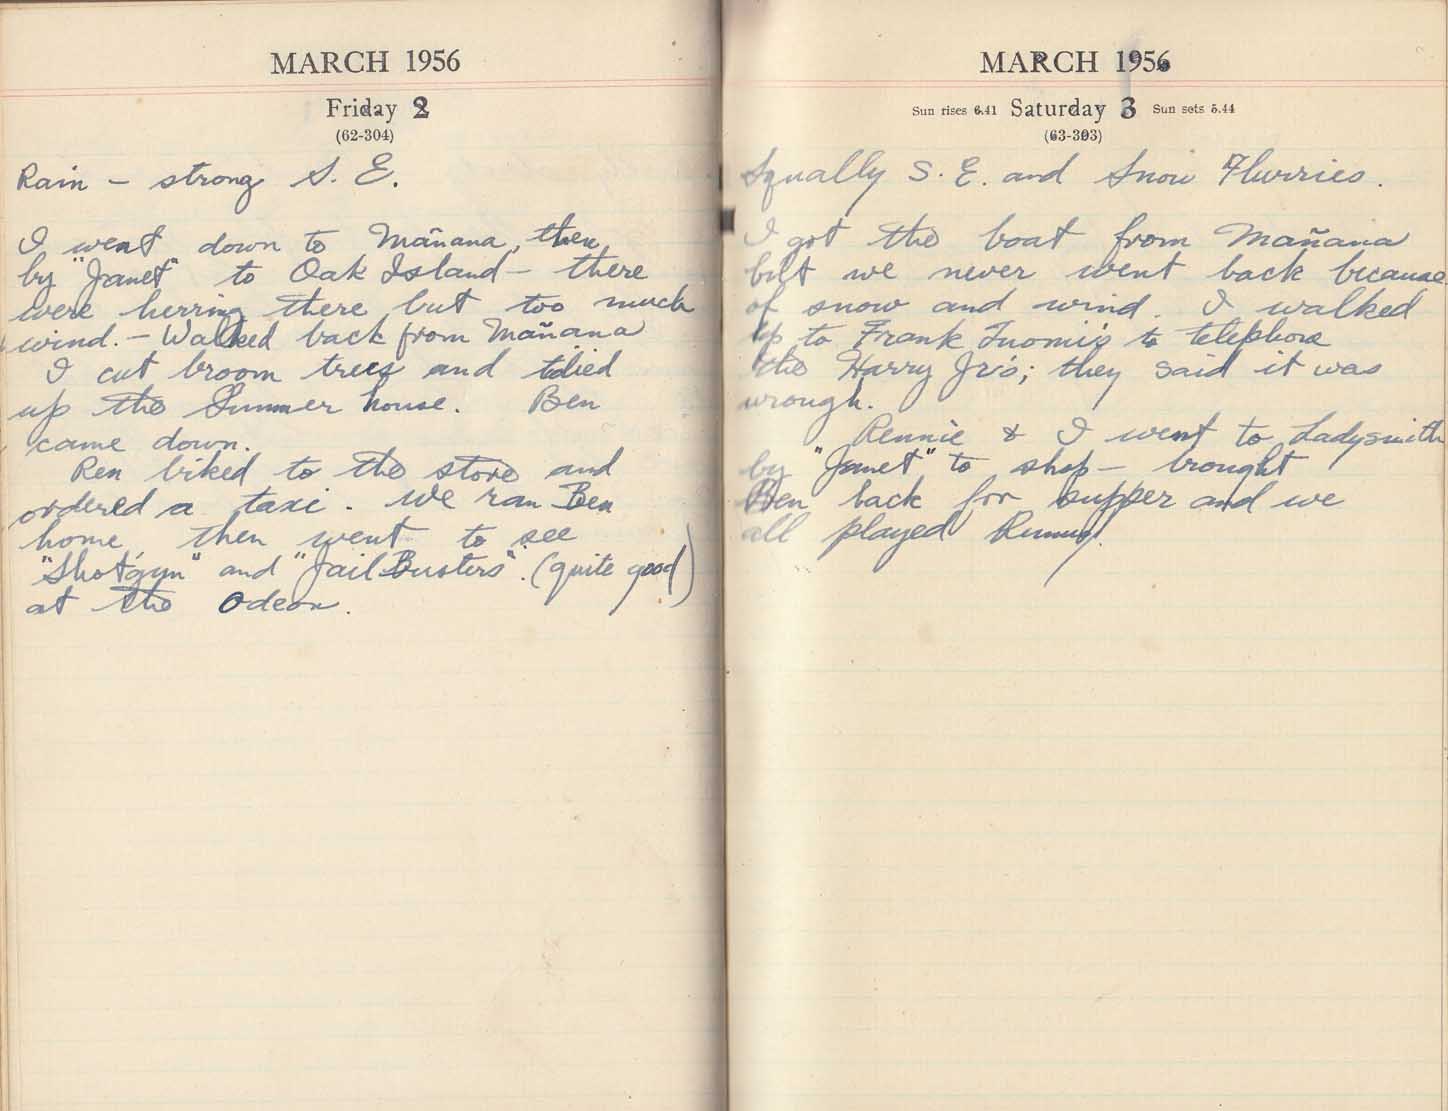 MARCH 1956
Friday 2
(62-304)
Rain – strong S. E.
I went down to Mañana, then
by "Janet" to Oak Island – there
were herring there but too much
wind. – Walked back from Mañana
I cut broom trees and tidied
up the Summer house. Ben
came down.
Ren biked to the store and
ordered a taxi. We ran Ben
home, then went to see
"Shotgun" and "Jail Busters". (quite good)
at the Odeon.
MARCH 1956
Sun rises 6.41 Saturday 3 Sun sets 5.44
(63-303)
Squally S. E. and Snow Flurries.
I got the boat from Mañana
but we never went back because
of snow and wind. I walked
up to Frank Tuomi's to telephone
the Harry Jr's; they said it was
wrough.
Rennie & I went to Ladysmith
by "Janet" to shop – brought
Ben back for supper and we
all played Rummy.